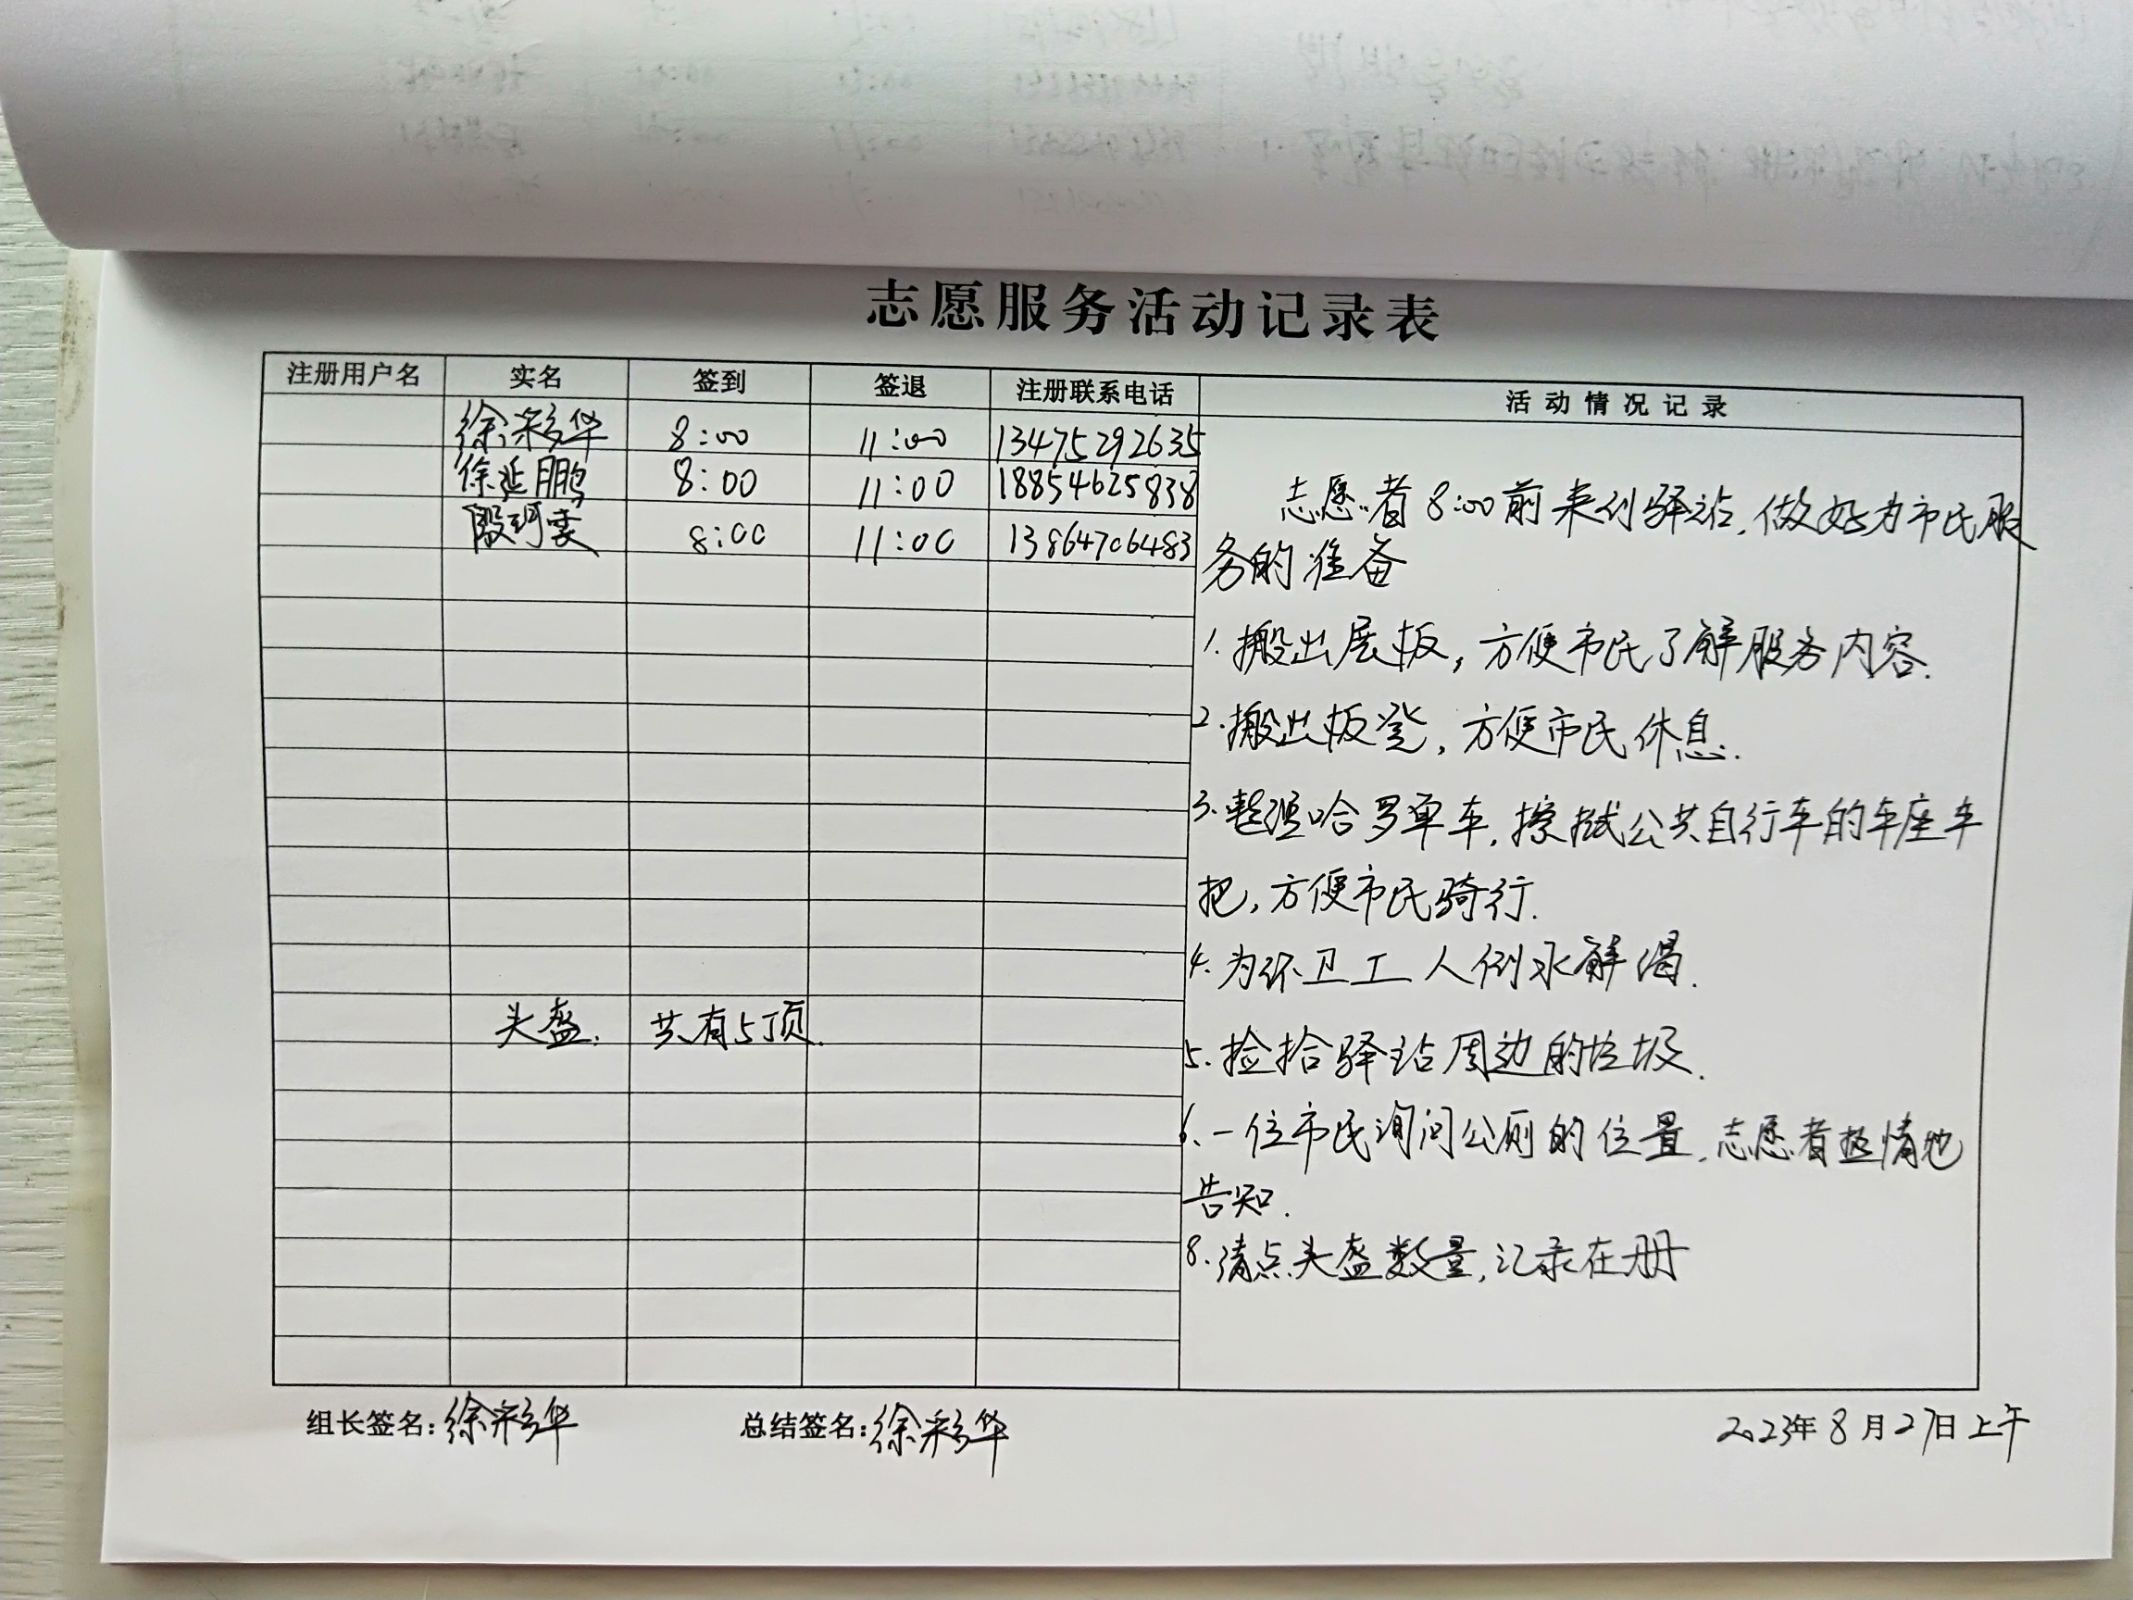 志愿服务活动记录表
注册用户名 实名 签到 签退 注册联系电话 活动情况记录
徐彩华 8:00 11:00 13475292635
徐延鹏 8:00 11:00 18854625838
殷珂雯 8:00 11:00 13864706483
志愿者8:00前来到驿站,做好为市民服
务的准备
1.搬出展板,方便市民了解服务内容.
2.搬出板凳,方便市民休息.
3.整理哈罗单车,擦拭公共自行车的车座车
把,方便市民骑行.
4.为环卫工人倒水解渴.
头盔. 共有5顶.
5.捡拾驿站周边的垃圾.
6.一位市民询问公厕的位置,志愿者热情地
告知.
8.清点头盔数量,记录在册
组长签名:徐彩华 总结签名:徐彩华 2023年8月27日上午